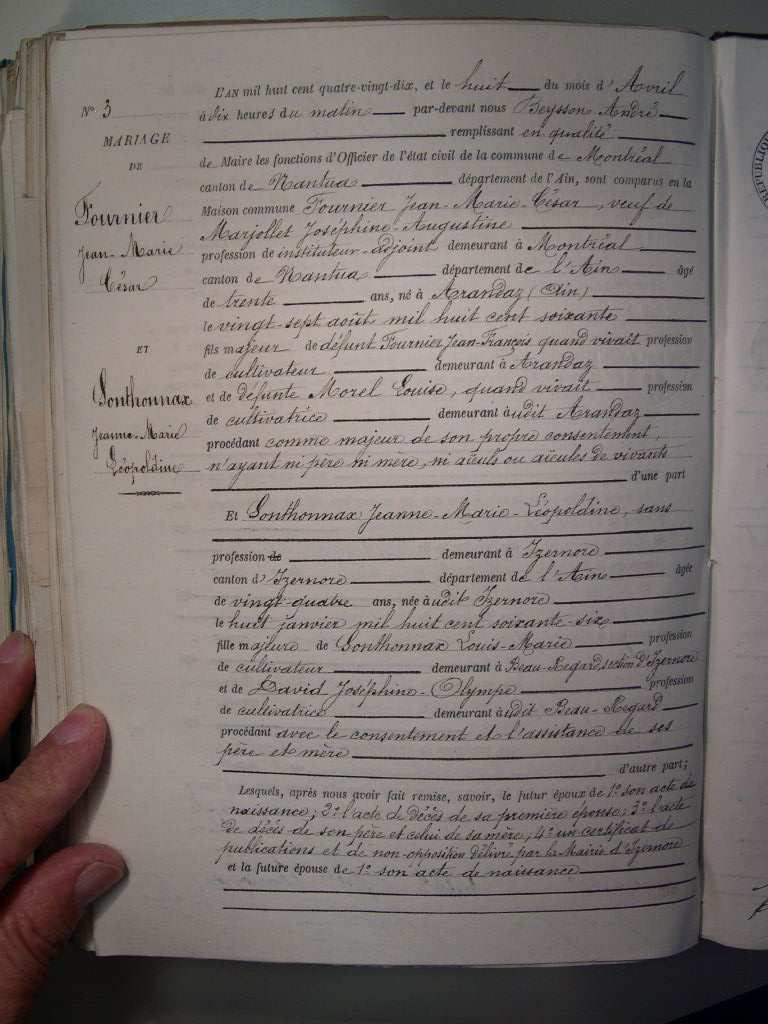 N° 3
MARIAGE
DE
Fournier
Jean-Marie
César
ET
Gonthonnax
Jeanne-Marie
Léopoldine
L'AN mil huit cent quatre-vingt-dix, et le huit du mois d'Avril
à dix heures du matin par-devant nous Beysson André
remplissant en qualité
de Maire les fonctions d'Officier de l'état civil de la commune de Montréal
canton de Nantua département de l'Ain, sont comparus en la
Maison commune Fournier Jean-Marie-César, veuf de
Marjollet Joséphine-Augustine
profession de instituteur-adjoint demeurant à Montréal
canton de Nantua département de l'Ain âgé
de trente ans, né à Arandaz (Ain)
le vingt-sept août mil huit cent soixante
fils majeur de défunt Fournier Jean-François quand vivait profession
de cultivateur demeurant à Arandaz
et de défunte Morel Louise, quand vivait profession
de cultivatrice demeurant audit Arandaz
procédant comme majeur de son propre consentement,
n'ayant ni père ni mère, ni aïeuls ou aïeules de vivants
d'une part
Et Gonthonnax Jeanne-Marie-Léopoldine, sans
profession de demeurant à Izernore
canton d'Izernore département de l'Ain âgée
de vingt-quatre ans, née audit Izernore
le huit janvier mil huit cent soixante-six
fille majeure de Gonthonnax Louis-Marie profession
de cultivateur demeurant à Beau-Regard, section d'Izernore
et de David Joséphine-Olympe profession
de cultivatrice demeurant audit Beau-Regard
procédant avec le consentement et l'assistance de ses
père et mère
d'autre part;
Lesquels, après nous avoir fait remise, savoir, le futur époux de 1° son acte de
naissance; 2° l'acte de décès de sa première épouse; 3° l'acte
de décès de son père et celui de sa mère; 4° un certificat de
publications et de non-opposition délivré par la Mairie d'Izernore
et la future épouse de 1° son acte de naissance